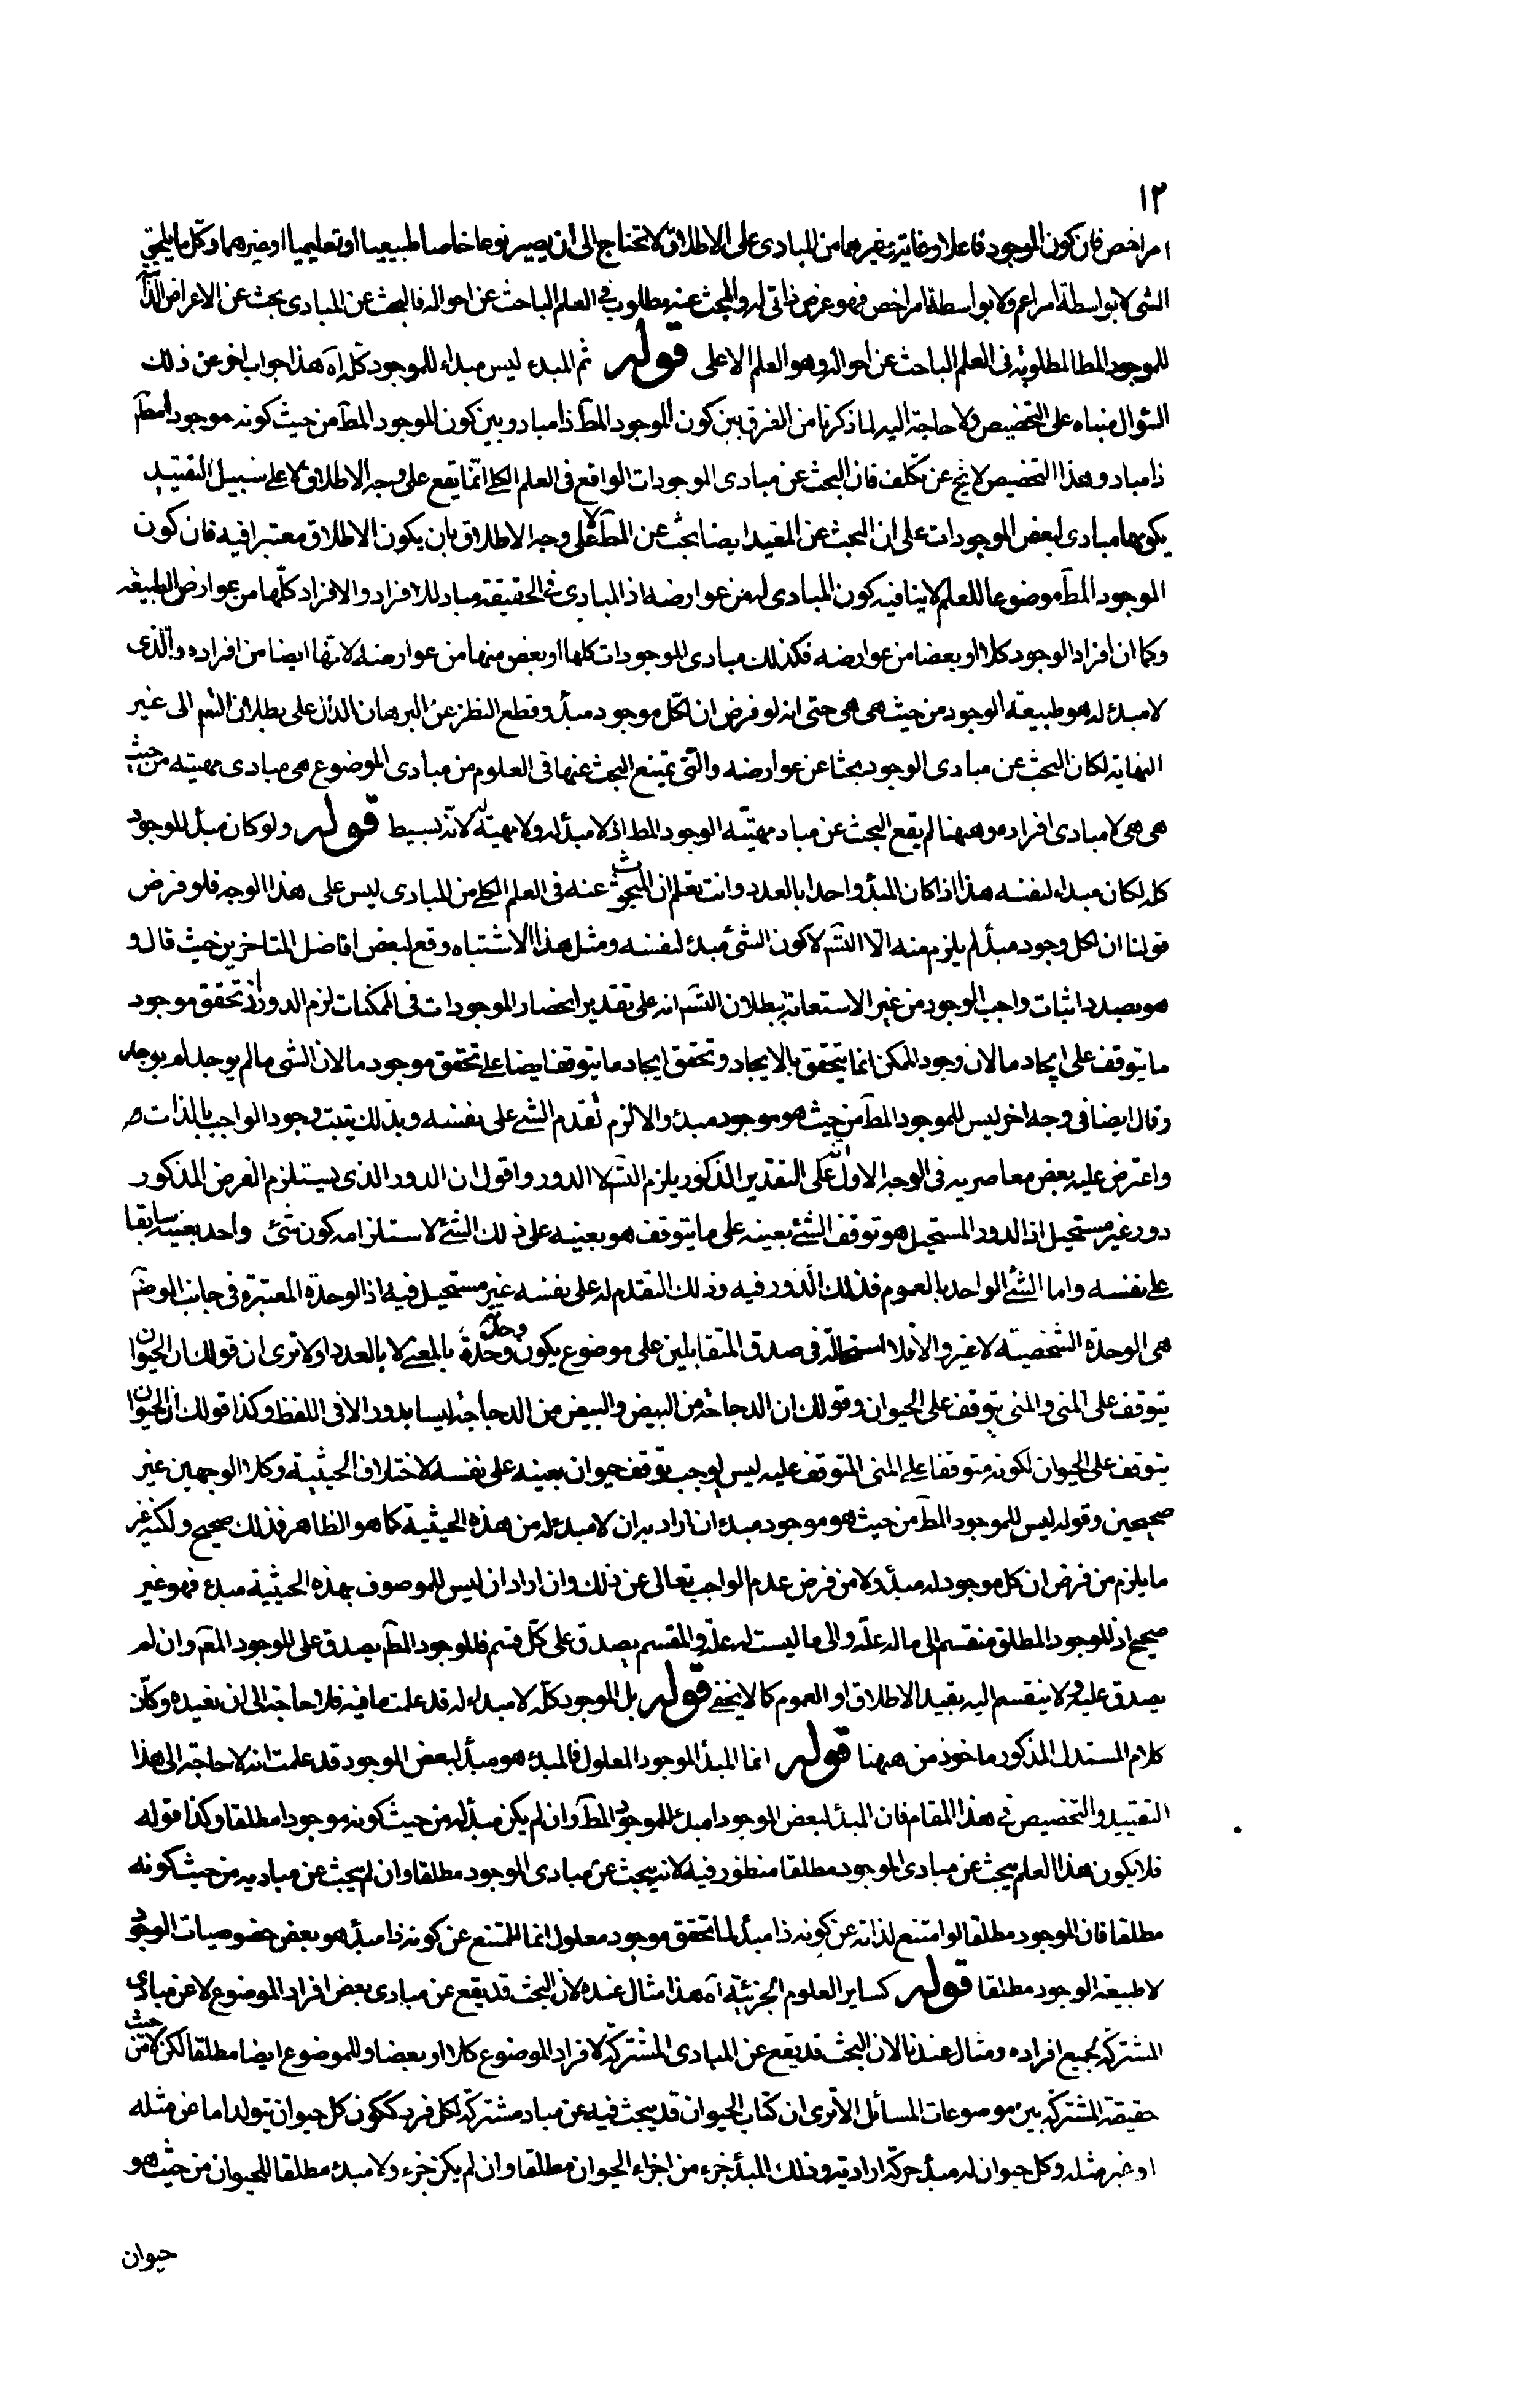 ١٢
امر اخص فان كون الموجود فاعلا او غاية او غيرهما من المبادى على الاطلاق لا تحتاج الى ان يصير نوعا خاصا طبيعيا او تعليميا او غيرهما وكل ما يلحق
الشى لا بواسطة امر اعم ولا بواسطة امر اخص فهو عرض ذاتى له والبحث عنه مطلوب فى العلم الباحث عن احواله فالبحث عن المبادى بحث عن الاعراض الذآ
للموجود المط المطلوبة فى العلم الباحث عن احواله وهو العلم الاعلى قوله ثم المبدء ليس مبداء للموجود كله اه هذا جواب اخر عن ذلك
السؤال مبناه على التخصيص ولا حاجة اليه لما ذكرنا من الفرق بين كون الموجود المط ذا مباد وبين كون الموجود المط من حيث كونه موجودا مط
ذا مباد وهذا التخصيص لا يخ عن تكلف فان البحث عن مبادى الموجودات الواقع فى العلم الكلى انما يقع على وجه الاطلاق لا على سبيل التقييد
بكونها مبادى لبعض الموجودات على ان البحث عن المقيد ايضا بحث عن المط لا على وجه الاطلاق بان يكون الاطلاق معتبرا فيه فان كون
الموجود المط موضوعا للعلم لا ينافيه كون المبادى له من عوارضه اذ المبادى فى الحقيقة مباد للافراد والافراد كلها من عوارض الطبيعة
وكما ان افراد الوجود كلا او بعضا من عوارضه فكذلك مبادى الموجودات كلها او بعض منها من عوارضه لانها ايضا من افراده والذى
لا مبدء له هو طبيعة الوجود من حيث هى هى حتى انه لو فرض ان لكل موجود مبدء وقطع النظر عن البرهان الدال على بطلان التس الى غير
النهاية لكان البحث عن مبادى الوجود بحثا عن عوارضه والتى يمتنع البحث عنها فى العلوم من مبادى الموضوع هى مبادى مهيته من حيث
هى هى لا مبادى افراده وههنا لم يقع البحث عن مباد مهيته الوجود المط اذ لا مبدء له ولا مهية له لانه بسيط قوله ولو كان مبدء للموجود
كله لكان مبداء لنفسه هذا اذا كان المبدء واحدا بالعدد وانت تعلم ان المبحوث عنه فى العلم الكلى من المبادى ليس على هذا الوجه فلو فرض
قولنا ان لكل وجود مبدء لم يلزم منه الا التس لا كون الشئ مبدء لنفسه ومثل هذا الاشتباه وقع لبعض افاضل المتاخرين حيث قال و
هو بصدد اثبات واجب الوجود من غير الاستعانة ببطلان التس انه على تقدير انحصار الموجودات فى الممكنات لزم الدور اذ تحقق موجود
ما يتوقف على ايجاد ما لان وجود الممكن انما يتحقق بالايجاد وتحقق ايجاد ما يتوقف ايضا على تحقق موجود ما لان الشى ما لم يوجد لم يوجد
وقال ايضا فى وجه اخر ليس للموجود المط من حيث هو موجود مبدء والا لزم تقدم الشئ على نفسه وبذلك يثبت وجود الواجب بالذات
واعترض عليه بعض معاصريه فى الوجه الاول انه على التقدير المذكور يلزم التس لا الدور واقول ان الدور الذى يستلزم الفرض المذكور
دور غير مستحيل اذ الدور المستحيل هو توقف الشئ بعينه على ما يتوقف هو بعينه على ذلك الشئ لاستلزامه كون شئ واحد بعينه سابقا
على نفسه واما الشئ الواحد بالعموم فذلك الدور فيه وذلك التقدم له على نفسه غير مستحيل فيه اذ الوحدة المعتبرة فى جانب الموضوع
هى الوحدة الشخصية لا غير والا فلا استحالة فى صدق المتقابلين على موضوع يكون وحدته وحدة بالمعنى لا بالعدد اولا ترى ان قولك ان الحيوان
يتوقف على المنى والمنى يتوقف على الحيوان وقولك ان الدجاجة من البيض والبيض من الدجاجة ليسا بدور الا فى اللفظ وكذا قولك ان الحيوان
يتوقف على الحيوان لكونه متوقفا على المنى المتوقف عليه ليس يوجب توقف حيوان بعينه على نفسه لاختلاف الحيثية وكلا الوجهين غير
صحيحين وقوله ليس للموجود المط من حيث هو موجود مبدء ان اراد به ان لا مبدء له من هذه الحيثية كما هو الظاهر فذلك صحيح ولكنه غير
ما يلزم من فرض ان كل موجود له مبدء ولا من فرض عدم الواجب تعالى عن ذلك وان اراد ان ليس للموصوف بهذه الحيثية مبدء فهو غير
صحيح اذ الموجود المطلق منقسم الى ما له علة والى ما ليست له علة والمقسم يصدق على كل قسم فالموجود المط يصدق على الموجود المع وان لم
يصدق عليه ولا ينقسم اليه بقيد الاطلاق او العموم كما لا يخفى قوله بل الموجود كله لا مبداء له قد علمت ما فيه فلا حاجة الى ان نعيده وكان
كلام المستدل المذكور ماخوذ من ههنا قوله انما المبدأ الموجود المعلول فالمبدء هو مبدأ لبعض الموجود قد علمت انه لا حاجة الى هذا
التقييد والتخصيص فى هذا المقام فان المبدأ لبعض الوجود مبدء للموجود المط وان لم يكن مبدأ له من حيث كونه موجودا مطلقا وكذا قوله
فلا يكون هذا العلم يبحث عن مبادى الموجود مطلقا منظور فيه لانه يبحث عن مبادى الوجود مطلقا وان لم يبحث عن مباديه من حيث كونه
مطلقا فان الموجود مطلقا لو امتنع لذاته عن كونه ذا مبدأ لما تحقق موجود معلول انما الممتنع عن كونه ذا مبدأ هو بعض خصوصيات الوجود
لا طبيعة الوجود مطلقا قوله كساير العلوم الجزئية اه هذا مثال عنده لان البحث قد يقع عن مبادى بعض افراد الموضوع لا عن مبادى
المشتركة لجميع افراده ومثال عندنا لان البحث قد يقع عن المبادى المشتركة لافراد الموضوع كلا او بعضا وللموضوع ايضا مطلقا لكن لا من حيث
حقيقته المشتركة بين موضوعات المسائل الا ترى ان كتاب الحيوان قد يبحث فيه عن مباد مشتركة لكل فرد ككون كل حيوان يتولد اما عن مثله
او غير مثله وكل حيوان له مبدأ حركة ارادية وذلك المبدأ جزء من اجزاء الحيوان مطلقا وان لم يكن جزء ولا مبدء مطلقا للحيوان من حيث هو
حيوان